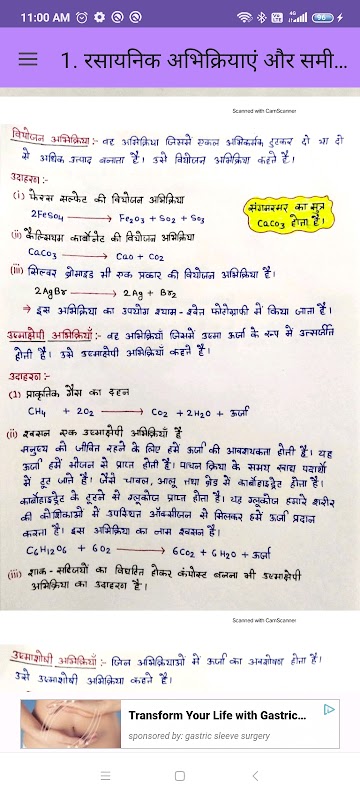 11:00 AM
96
1. रसायनिक अभिक्रियाएं और समी...
Scanned with CamScanner
वियोजन अभिक्रिया :- वह अभिक्रिया जिसमें एकल अभिकर्मक टुटकर दो या दो
से अधिक उत्पाद बनाता है। उसे वियोजन अभिक्रिया कहते हैं।
उदाहरण :-
(i) फेरस सल्फेट की वियोजन अभिक्रिया
2FeSO4 → Fe2O3 + SO2 + SO3
संगमरमर का सुत्र
CaCO3 होता है।
(ii) कैल्सियम कार्बोनेट की वियोजन अभिक्रिया
CaCO3 → CaO + CO2
(iii) सिल्वर ब्रोमाइड भी एक प्रकार की वियोजन अभिक्रिया है।
2AgBr → 2Ag + Br2
⇒ इस अभिक्रिया का उपयोग श्याम-श्वेत फोटोग्राफी में किया जाता है।
उष्माक्षेपी अभिक्रियाँ :- वह अभिक्रियाँ जिसमें उष्मा ऊर्जा के रूप में उत्सर्जीत
होती है। उसे उष्माक्षेपी अभिक्रियाँ कहते हैं।
उदाहरण :-
(1) प्राकृतिक गैस का दहन
CH4 + 2O2 → CO2 + 2H2O + ऊर्जा
(ii) श्वसन एक उष्माक्षेपी अभिक्रियाँ हैं
मनुष्य को जीवित रहने के लिए हमें ऊर्जा की आवश्यकता होती है। यह
ऊर्जा हमें भोजन से प्राप्त होती है। पाचन क्रिया के समय खाद्य पदार्थों
में टुट जाते हैं। जैसे चावल, आलू तथा ब्रेड में कार्बोहाइड्रेट होता है।
कार्बोहाइड्रेट के टूटने से ग्लूकोज प्राप्त होता है। यह ग्लूकोज हमारे शरीर
की कोशिकाओं में उपस्थित ऑक्सीजन से मिलकर हमें ऊर्जा प्रदान
करता है। इस अभिक्रिया का नाम श्वसन है।
C6H12O6 + 6O2 → 6CO2 + 6H2O + ऊर्जा
(iii) शाक-सब्जियों का विघटित होकर कंपोस्ट बनना भी उष्माक्षेपी
अभिक्रिया का उदाहरण है।
Scanned with CamScanner
उष्माशोषी अभिक्रियाँ :- जिन अभिक्रियाओं में ऊर्जा का अवशोषण होता है।
उसे उष्माशोषी अभिक्रिया कहते हैं।
Transform Your Life with Gastric...
sponsored by: gastric sleeve surgery